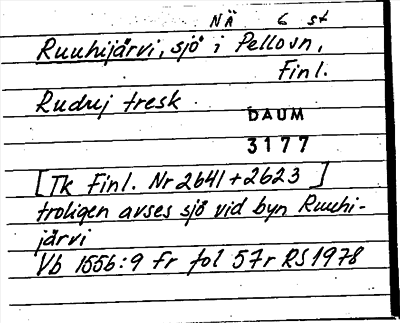 NÄ 6 st
Ruuhijärvi, sjö i Pellovn,
Finl.
Ruduj tresk
DAUM
3177
[Tk Finl. Nr 2641 + 2623 ]
troligen avses sjö vid byn Ruuhi-
järvi
Vb 1556:9 Fr fol 57r RS 1978